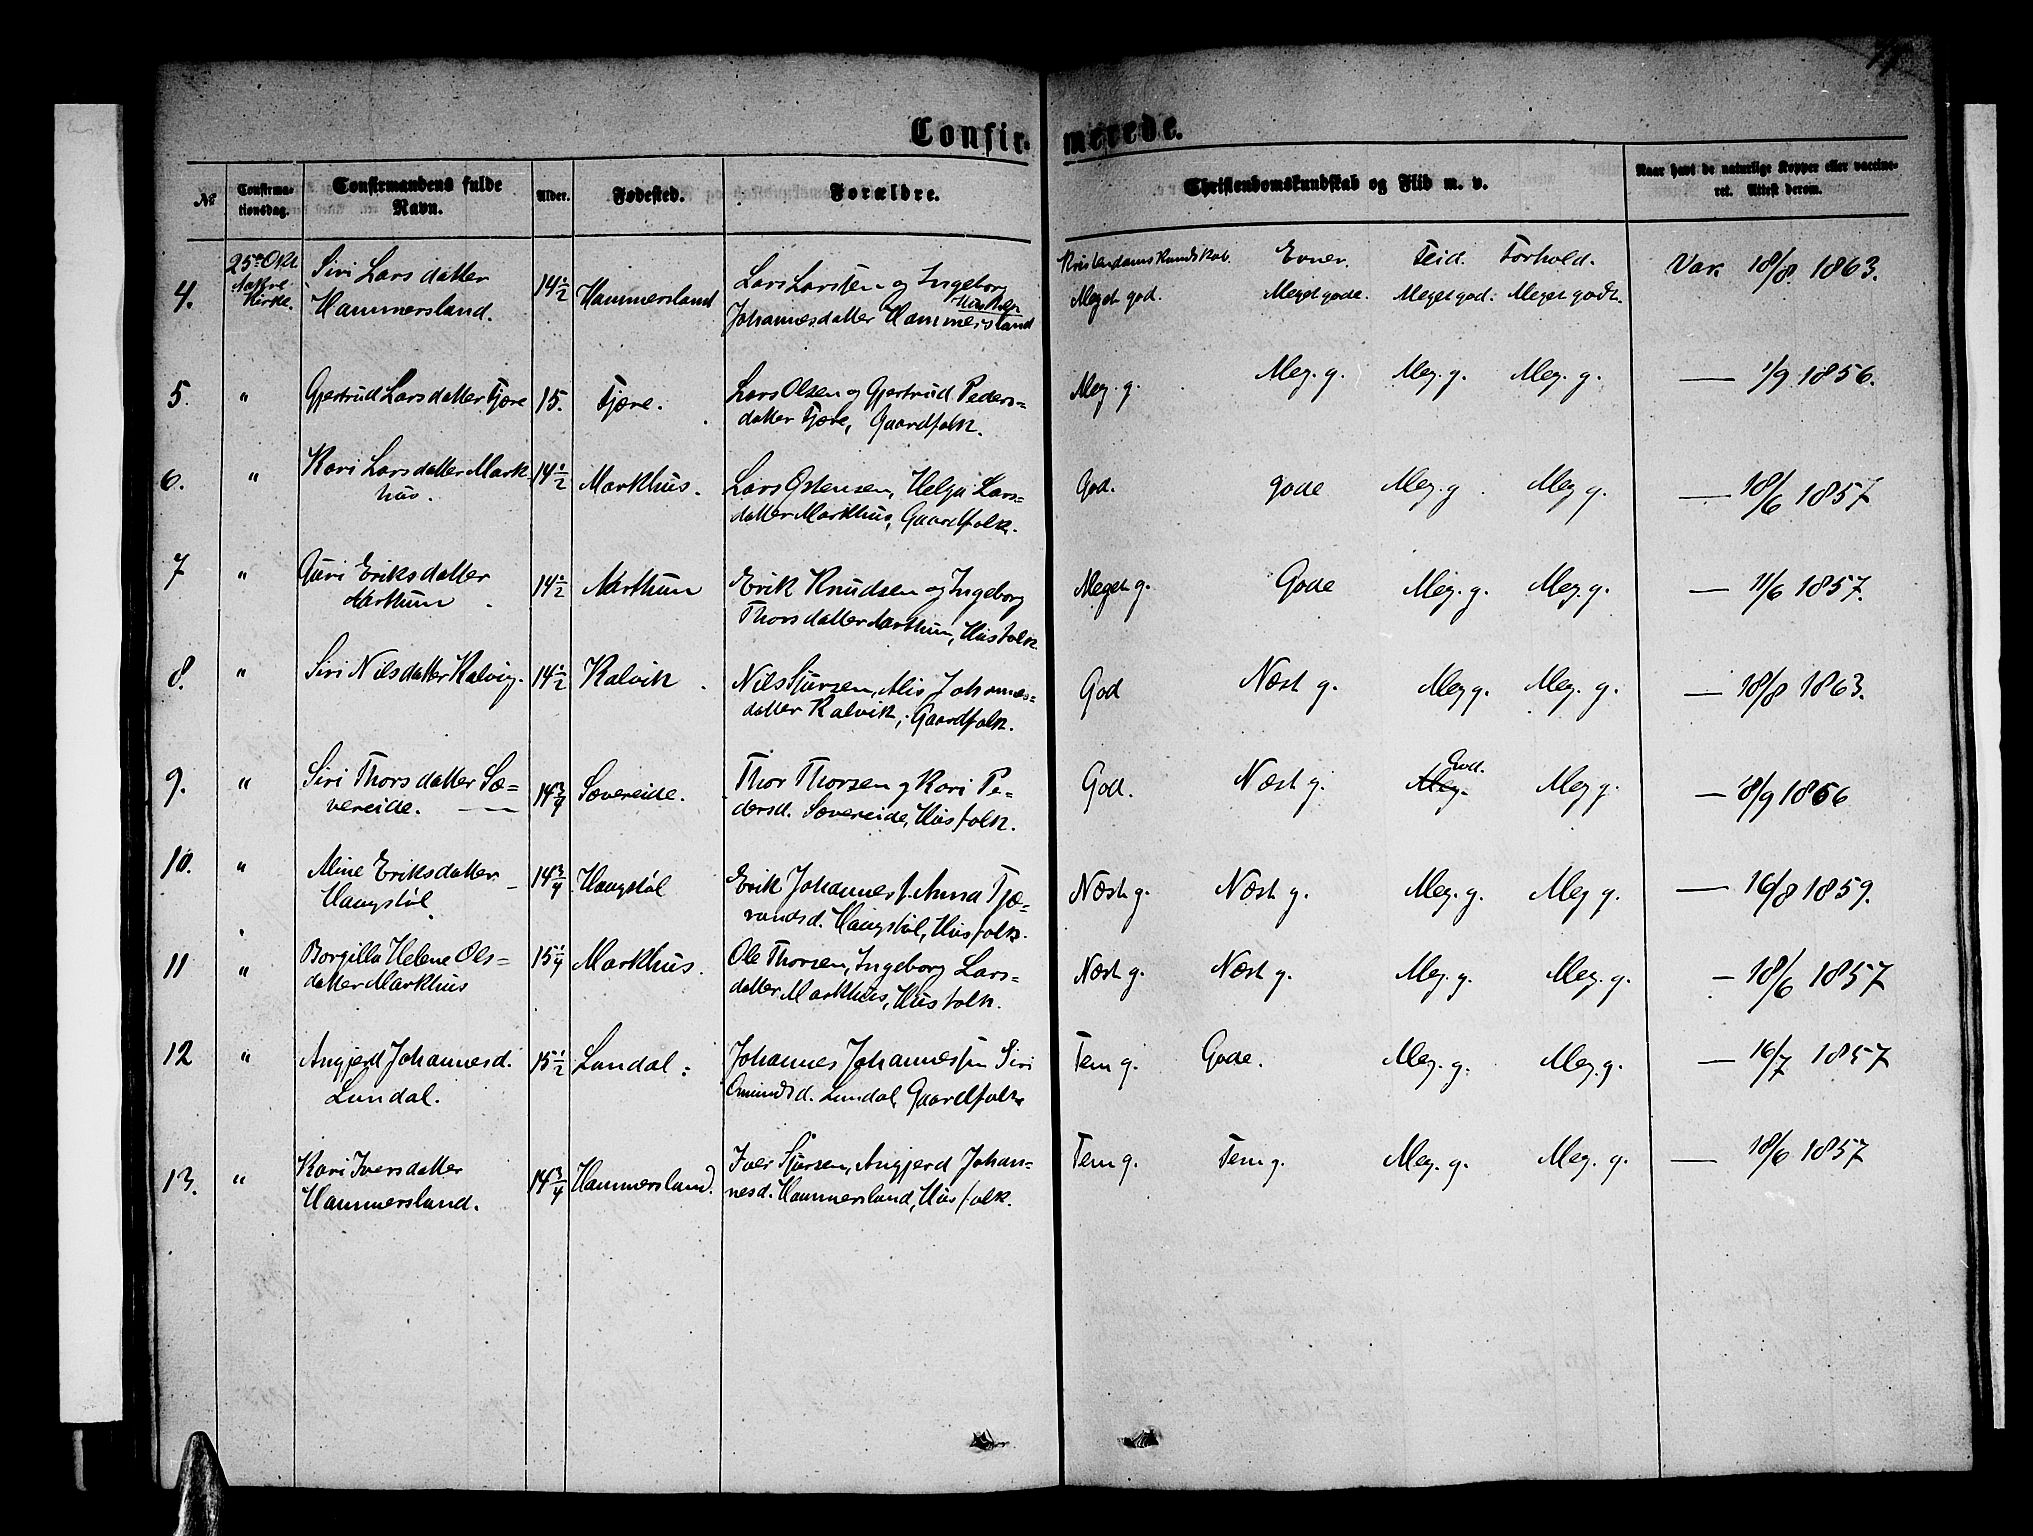 Confirmerede.
№ Confirmationsdag. Confirmandens fulde Navn. Alder. Fødested. Forældre. Christendomskundskab og Flid m. v. Naar havt de naturlige Kopper eller vaccineret. Attest derom.
Kristendomskundskab. Evner. Fleid. Forhold.
4. 25de Okt. Kirke. Siri Larsdatter Hammersland. 14 1/2 Hammersland Lars Larssen og Ingeborg Johannesdatter Hammersland Husfolk Meget god. Meget gode. Meget god. Meget godt. Vac. 18/8 1863.
5. " Gjertrud Larsdatter Fjære 15. Fjære. Lars Olsen og Gjertrud Peders=
datter Fjære, Gaardfolk. Meg. g. Meg. g. Meg. g. Meg. g. — 1/9 1856.
6. " Kari Larsdatter Mark-
hus. 14 1/2 Markhus. Lars Østensen, Helga Lars=
datter Markhus, Gaardfolk. God. gode Meg. g. Meg g. — 18/6 1857
7 " Guri Eriksdatter
Aarthun. 14 1/2 Aarthun Erik Knudsen og Ingeborg
Thorsdatter Aarthun, Husfolk Meget g. Gode Meg. g. Meg. g. — 11/6 1857.
8. " Siri Nilsdatter Kalvig. 14 1/2 Kalvik. Nils Sjursen, Alis Johannes=
datter Kalvik, Gaardfolk. God Næst g. Meg g. Meg. g. — 18/8 1863.
9. " Siri Thorsdatter Sæ=
vereide. 14 3/4 Sævereide. Thor Thorsen og Kari Pe=
dersd. Sævereide, Husfolk. God. Næst g. Meg. God. Meg g. — 18/9 1856
10. " Aline Eriksdatter
Haugstøl. 14 3/4 Haugstøl Erik Johannesf. Anna Tjæ=
randsd. Haugstøl, Husfolk. Næst g. Næst g. Meg. g. Meg g. — 16/8 1859.
11 " Borgilla Helene Ols=
datter Markhus 15 1/4 Markhus. Ole Thorsen, Ingeborg Lars=
datter Markhus, Husfolk. Næst g. Næst g. Meg. g. Meg. g. — 18/6 1857
12 " Angjerd Johannesd.
Lundal. 15 1/2 Lundal. Johannes Johannessen Siri
Omundsd. Lundal, Gaardfolk Tem g. Gode. Meg. g. Meg. g. — 16/7 1857
13. " Kari Iversdatter
Hammersland. 14 3/4 Hammersland. Iver Sjursen, Angjerd Johan=
nesd. Hammersland, Husfolk. Tem g. Tem g. Meg. g. Meg. g. — 18/6 1857